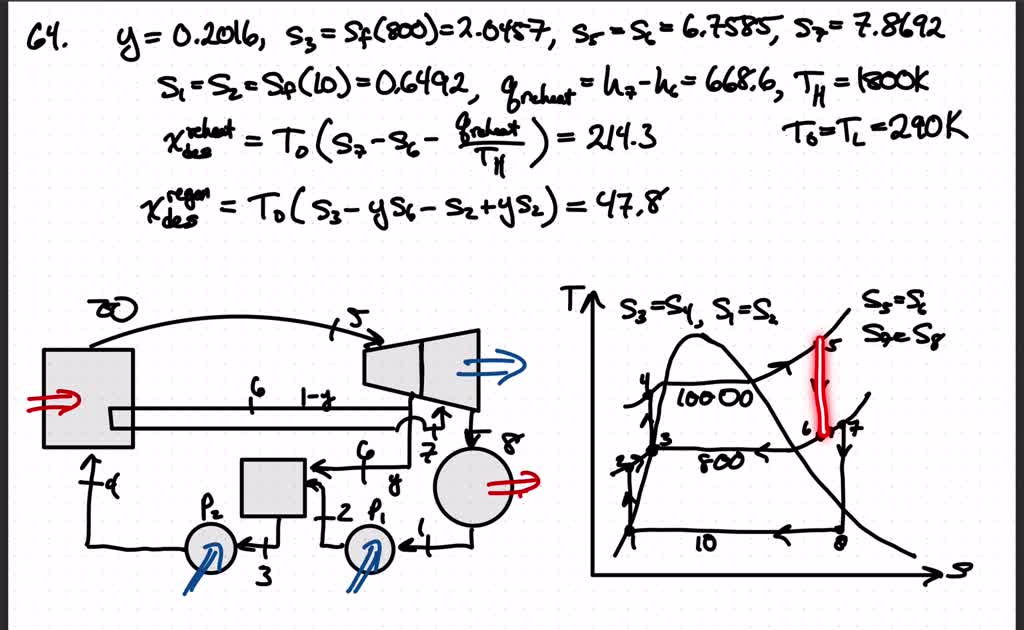 64. y = 0.2016, s₃ = s_f(800) = 2.0457, s₅ = s₆ = 6.7585, s₇ = 7.8692
s₁ = s₂ = s_f(10) = 0.6492, q_reheat = h₇ - h₆ = 668.6, T_H = 1800K
x_des^reheat = T₀(s₇ - s₆ - q_reheat/T_H) = 214.3 T₀ = T_L = 290K
x_des^regen = T₀(s₃ - ys₆ - s₂ + ys₂) = 47.8
5
6 1-y
7
8
6
y
4
P₂
2
P₁
1
3
T
s₃ = s₄, s₁ = s₂
s₅ = s₆
s₇ = s₈
5
4
10000
6
7
3
800
2
1
10
8
s